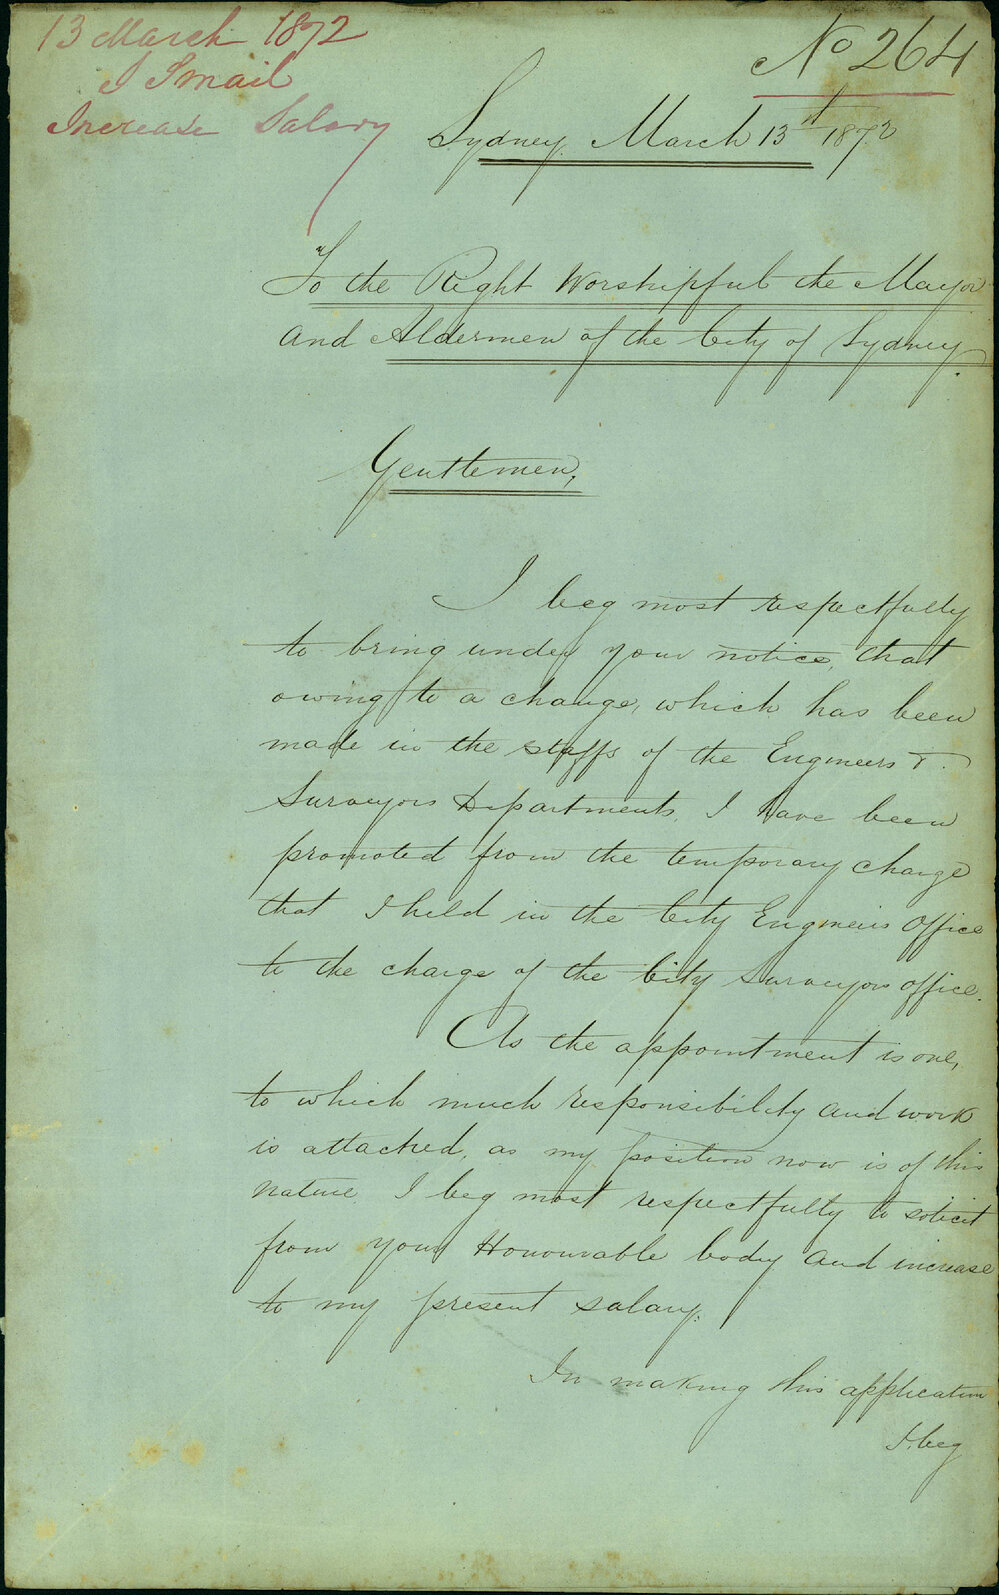 13 March 1872
J Smail
Increase Salary
No 264
Sydney March 13th 1872
To the Right Worshipful the Mayor
and Aldermen of the City of Sydney.
Gentlemen,
I beg most respectfully
to bring under your notice, that
owing to a change, which has been
made in the staffs of the Engineers &
Surveyors Departments, I have been
promoted from the temporary charge
that I held in the City Engineers Office
to the charge of the City Surveyors office.
As the appointment is one,
to which much responsibility and work
is attached, as my position now is of this
nature, I beg most respectfully to solicit
from your Honourable body and increase
to my present salary.
In making this application
I beg